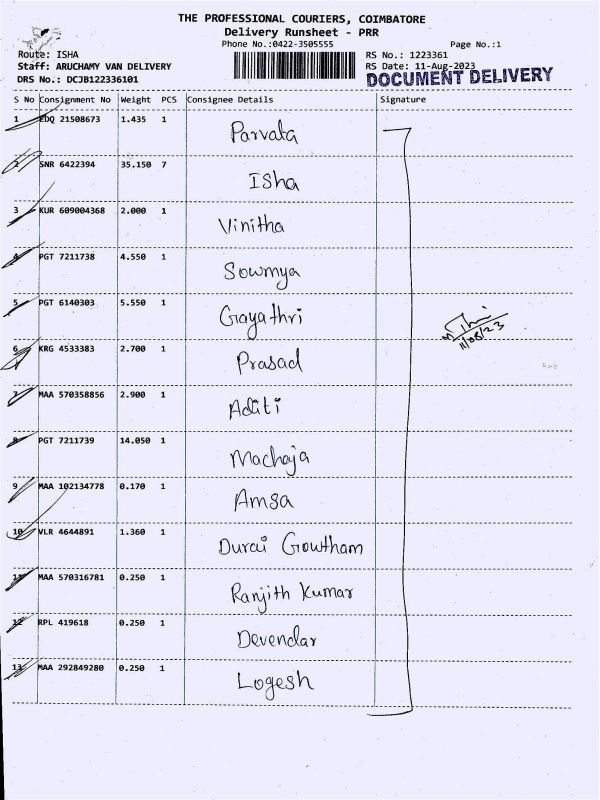 THE PROFESSIONAL COURIERS, COIMBATORE
Delivery Runsheet - PRR
Phone No.:0422-3505555 Page No.:1
Route: ISHA RS No.: 1223361
Staff: ARUCHAMY VAN DELIVERY RS Date: 11-Aug-2023
DRS No.: DCJB122336101 DOCUMENT DELIVERY
S No Consignment No Weight PCS Consignee Details Signature
1 EDQ 21508673 1.435 1 Parvata
2 SNR 6422394 35.150 7 Isha
3 KUR 609004368 2.000 1 Vinitha
4 PGT 7211738 4.550 1 Sowmya
5 PGT 6140303 5.550 1 Gayathri
11/08/23
6 KRG 4533383 2.700 1 Prasad
7 MAA 570358856 2.900 1 Aditi
8 PGT 7211739 14.050 1 Machaja
9 MAA 102134778 0.170 1 Amsa
10 VLR 4644891 1.360 1 Durai Gowtham
11 MAA 570316781 0.250 1 Ranjith Kumar
12 RPL 419618 0.250 1 Devendar
13 MAA 292849280 0.250 1 Logesh